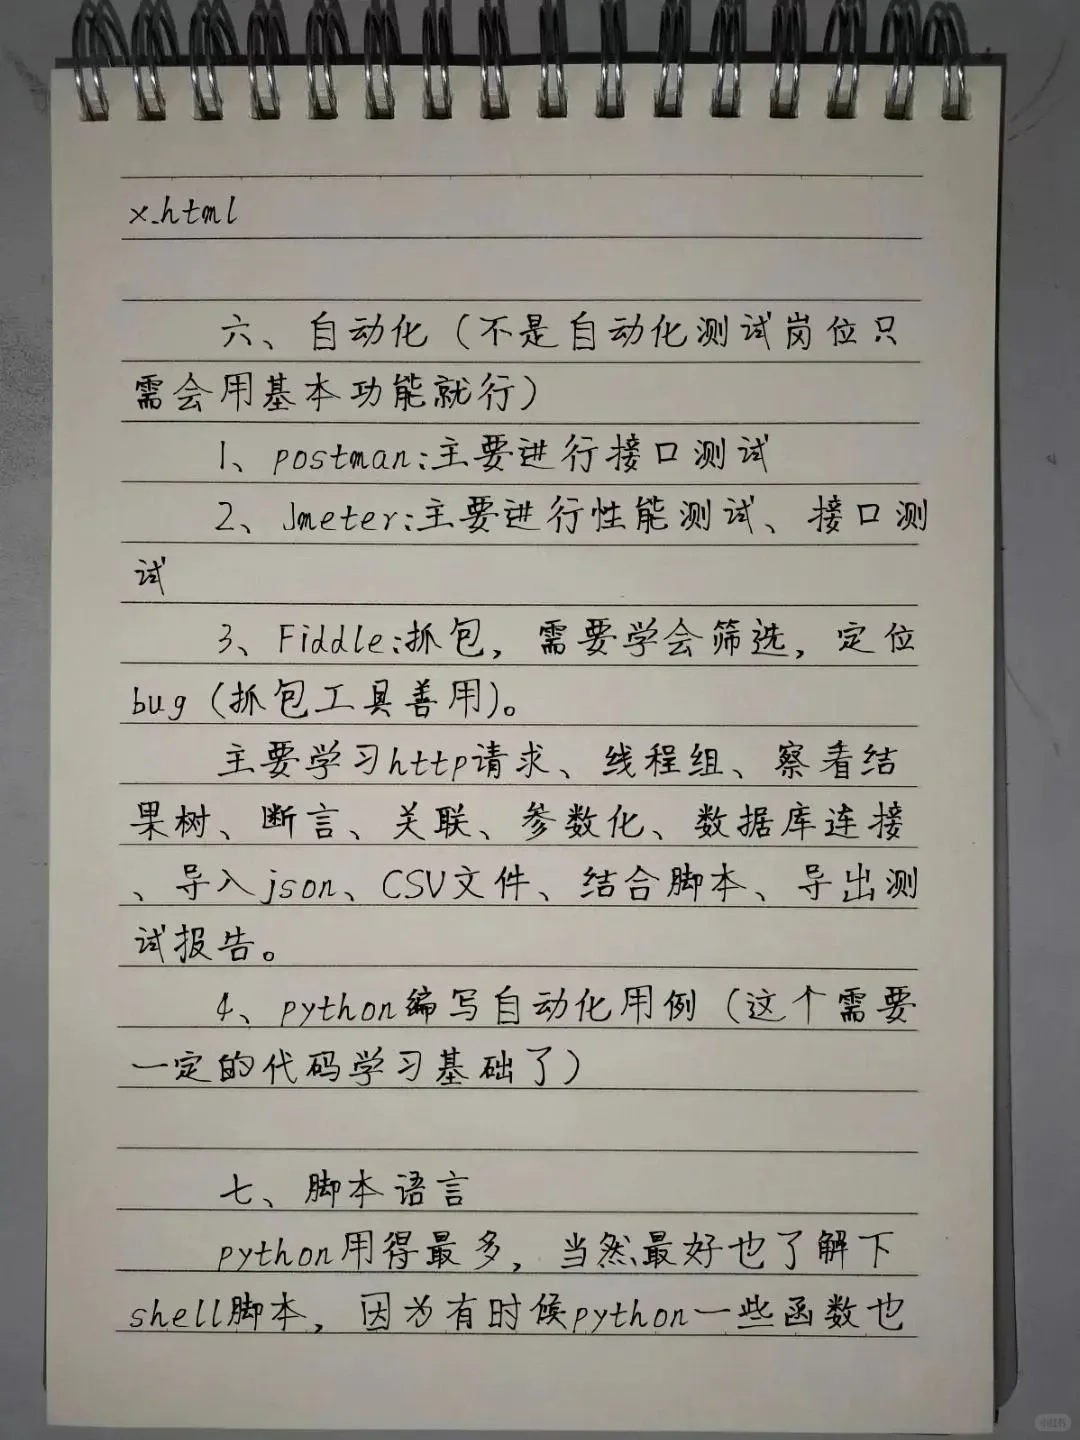 x.html
六、自动化（不是自动化测试岗位只
需会用基本功能就行）
1、postman:主要进行接口测试
2、Jmeter:主要进行性能测试、接口测
试
3、Fiddle:抓包，需要学会筛选，定位
bug（抓包工具善用)。
主要学习http请求、线程组、察看结
果树、断言、关联、参数化、数据库连接
、导入json、CSV文件、结合脚本、导出测
试报告。
4、python编写自动化用例（这个需要
一定的代码学习基础了）
七、脚本语言
python用得最多，当然最好也了解下
shell脚本，因为有时候python一些函数也